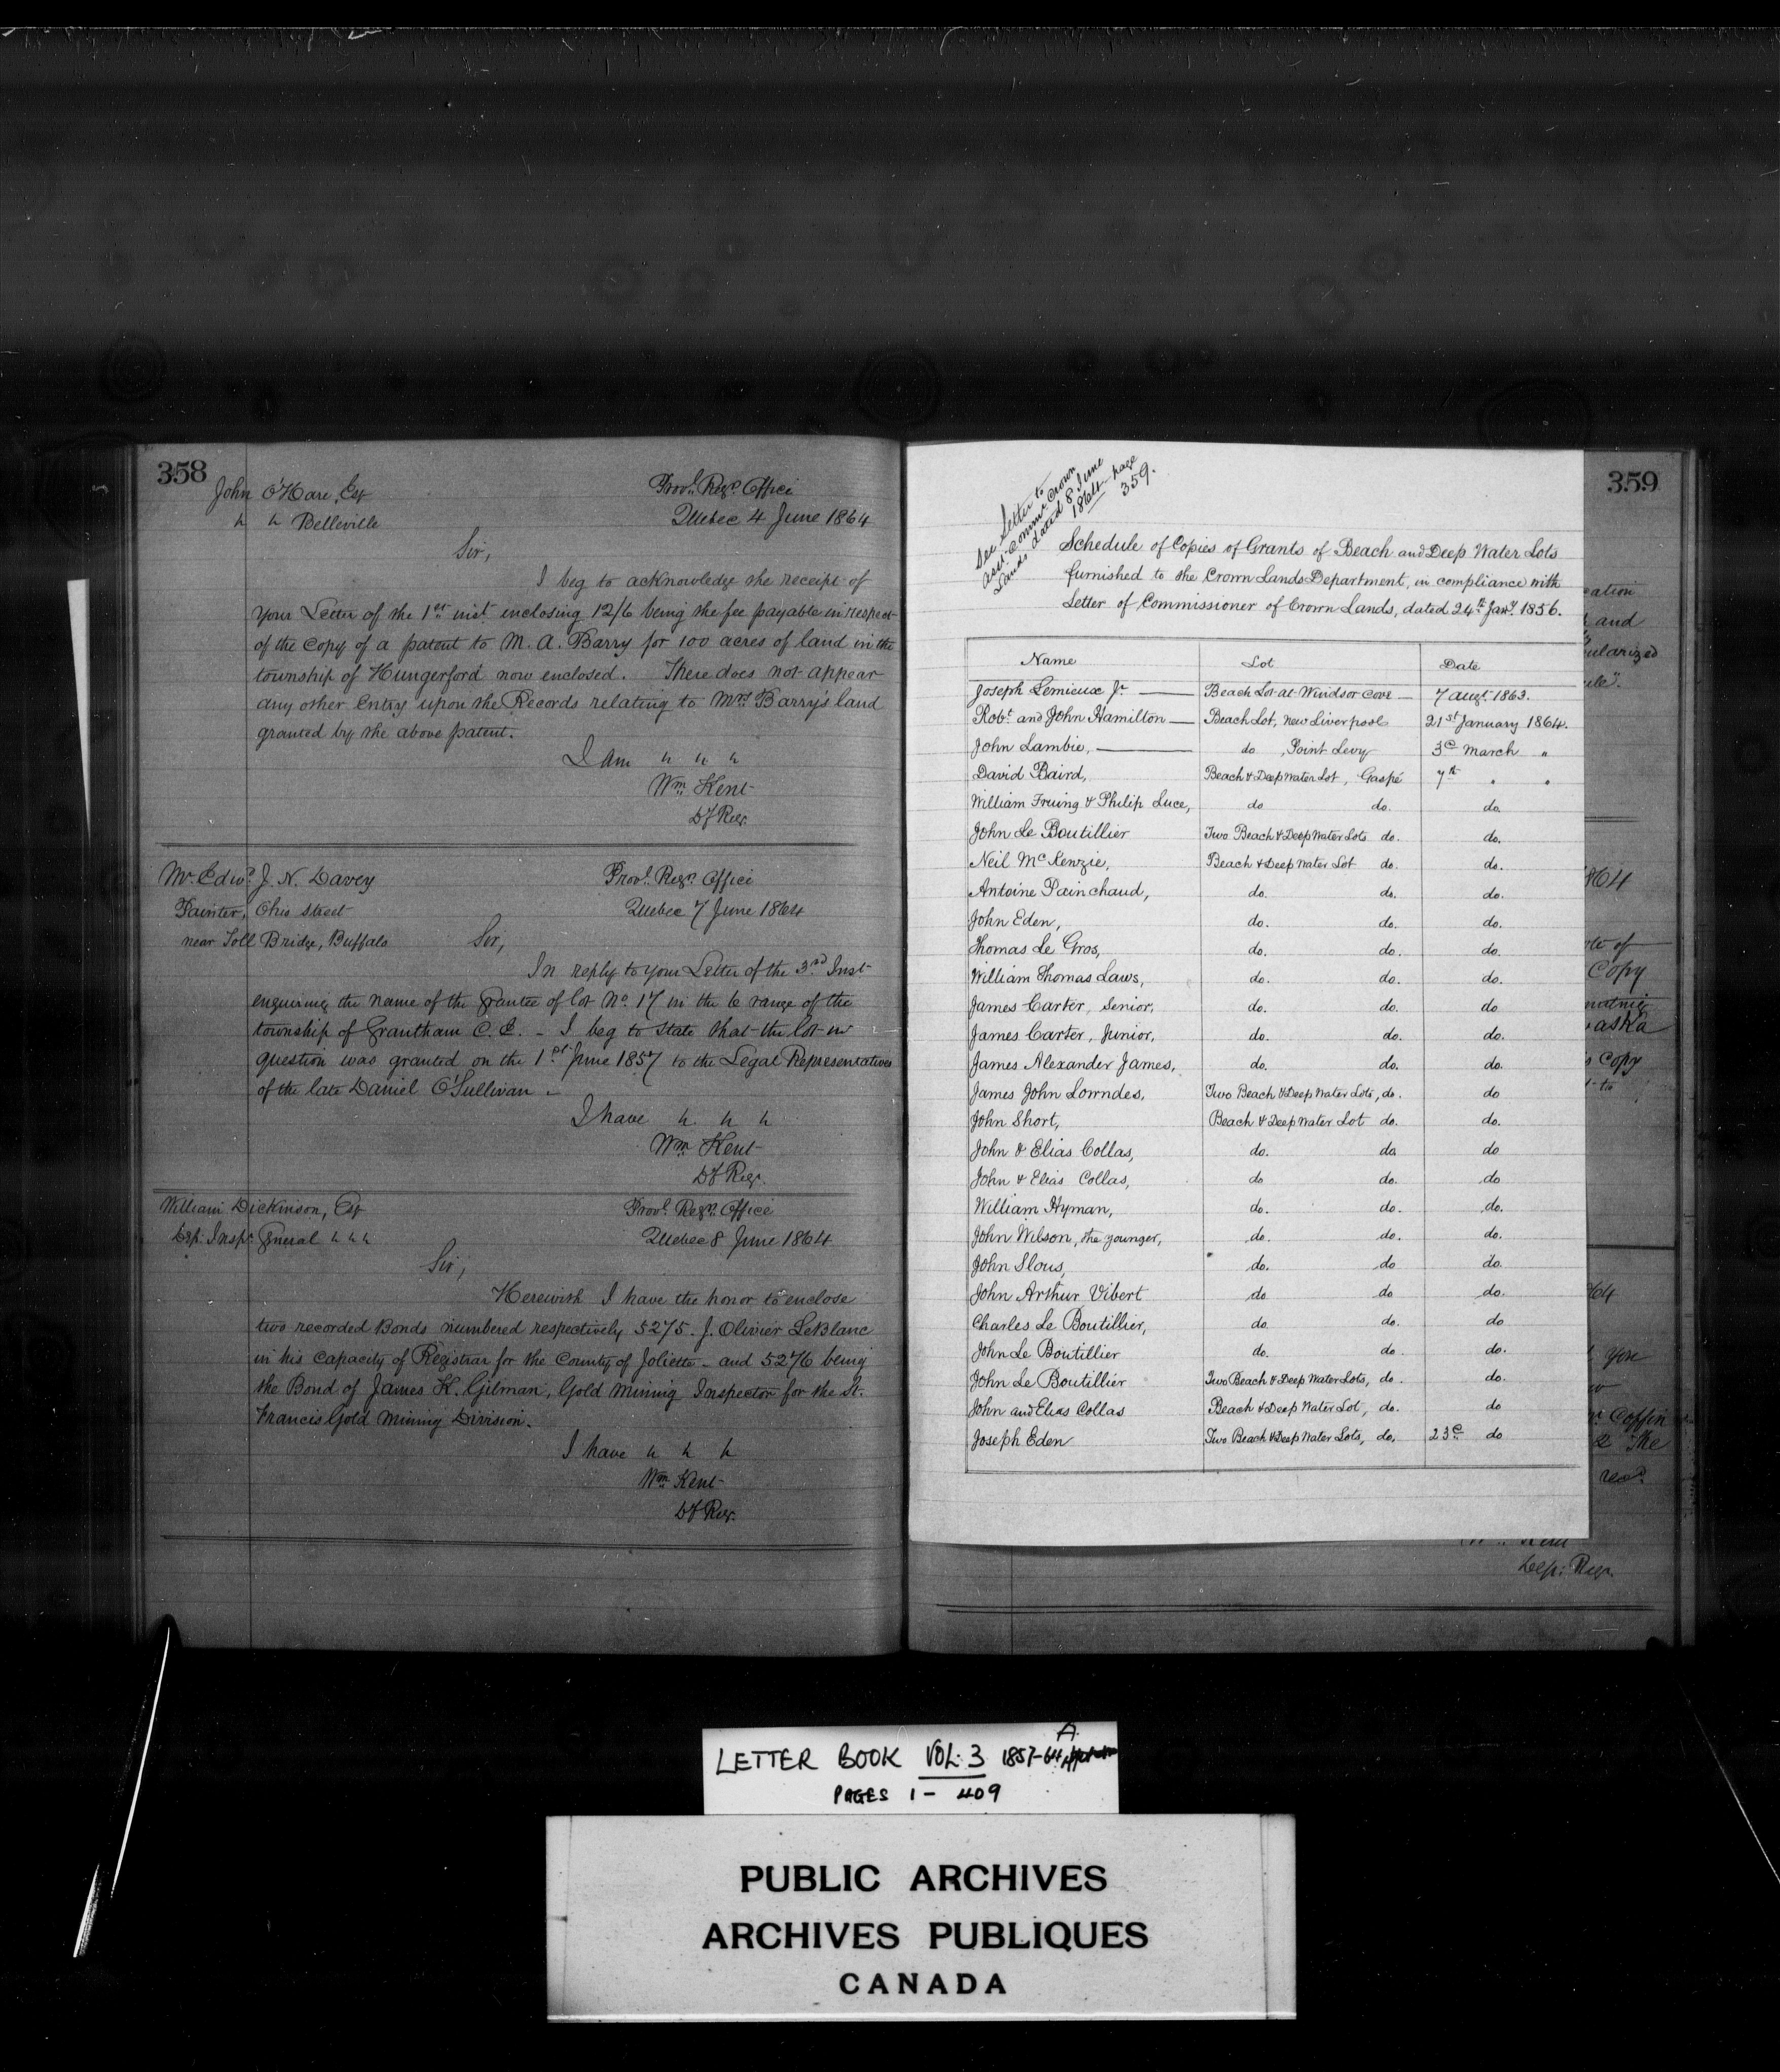 358
John O'Hare, Esq
Provl. Regr. Office
" " Belleville
Quebec 4 June 1864
Sir,
I beg to acknowledge the receipt of
your Letter of the 1st inst. enclosing 12/6 being the fee payable in respect
of the copy of a patent to M. A. Barry for 100 acres of land in the
township of Hungerford now enclosed. There does not appear
any other Entry upon the Records relating to Mrs Barry's land
granted by the above patent.
I am " " "
Wm Kent
Dy Regr.
Mr. Edwd. J. N. Davey
Provl. Regr. Office
Painter, Ohio Street
Quebec 7 June 1864
near Toll Bridge, Buffalo
Sir,
In reply to your Letter of the 3rd Inst
enquiring the name of the Grantee of lot No. 17 in the 6 range of the
township of Grantham C. E. - I beg to state that the lot in
question was granted on the 1st June 1857 to the Legal Representatives
of the late Daniel O'Sullivan -
I have " " "
Wm Kent
Dy Regr.
William Dickinson, Esq
Provl. Regr. Office
Dep: Inspr General " " "
Quebec 8 June 1864
Sir,
Herewith I have the honor to enclose
two recorded Bonds numbered respectively 5275. J. Olivier LeBlanc
in his capacity of Registrar for the County of Joliette - and 5276 being
the Bond of James K. Gilman, Gold Mining Inspector for the St.
Francis Gold Mining Division.
I have " " "
Wm Kent
Dy Regr.
See Letter to
Asst. Commr. Crown
Lands dated 8 June
1864 page
359.
Schedule of Copies of Grants of Beach and Deep Water Lots
furnished to the Crown Lands Department, in compliance with
Letter of Commissioner of Crown Lands, dated 24th Jany. 1856.
Name Lot Date
Joseph Lemieux Jr. — Beach Lot at Windsor Cove — 7 Augt. 1863.
Robt. and John Hamilton — Beach Lot, New Liverpool 21st January 1864.
John Lambie, — do , Point Levy 3d March "
David Baird, Beach & Deep Water Lot, Gaspé 7th " "
William Fruing & Philip Luce, do do. do.
John Le Boutillier Two Beach & Deep Water Lots do. do.
Neil McKenzie, Beach & Deep Water Lot do. do.
Antoine Painchaud, do. do. do.
John Eden, do. do. do.
Thomas Le Gros, do. do. do.
William Thomas Laws, do. do. do.
James Carter, Senior, do. do. do
James Carter, Junior, do. do. do.
James Alexander James, do. do. do.
James John Lowndes, Two Beach & Deep Water Lots, do. do
John Short, Beach & Deep Water Lot do. do.
John & Elias Collas, do. do do
John & Elias Collas, do do. do
William Hyman, do. do. do.
John Wilson, the younger, do. do. do.
John Slous, do. do do.
John Arthur Vibert do do do.
Charles Le Boutillier, do. do. do
John Le Boutillier do. do. do.
John Le Boutillier Two Beach & Deep Water Lots, do. do.
John and Elias Collas Beach & Deep Water Lot, do. do
Joseph Eden Two Beach & Deep Water Lots, do. 23d do
359
and
Copy
aska
copy
64
you
Coffin
The
Dep: Regr.
LETTER BOOK VOL. 3 1857-64 A
PAGES 1 - 409
PUBLIC ARCHIVES
ARCHIVES PUBLIQUES
CANADA